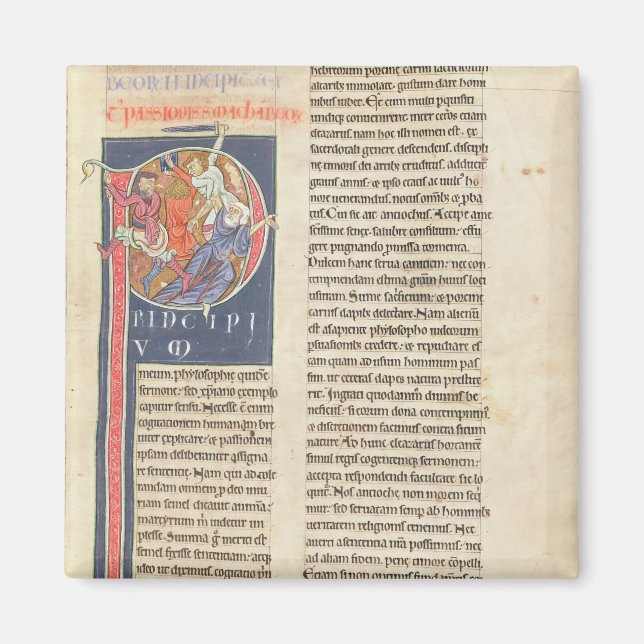 PRINCIPI
VM
meum, phylosophię quidē
sermone: sed xp̄iano exemplo
capitur sensu. Necesse ē enim
cogitationem humanam bre
uiter explicare: & passionem
ipsam deliberanter assigna
re sententię. Nam qui ad cœle
tandam omnem p deo iniu
riam semel dicauit animā:
martyrium m̄ uidetur im
plesse. Summa g̊ meriti est
semel fixisse sententiam: atq;
ideo ut diximus, cogitatio p̄ri
hebreorum porcine carnis
altaribꝫ immolate, gustum dare homi
nibus iubet. Et cum multi p̄quisiti
undiq; conuenirent inter ceteros etiam
eleazarus nam hoc illi nomen est. ex
sacerdotali genere descendens, discipli
ne timoris dei archę eruditus. adducitur
grauis annis: & ipso ętatis ac uultꝰ ho
nore uenerandus. notus omībꝫ & pba
tus. Cui sic ait antiochus. Accipe ame
tissime senex salubre consilium: & effu
gere pugnando p̄missa tormenta.
Dulcem hanc serua canitiem: nec con
tempnendam estima gram̄ huius loci
usitatam. Sume sacrificium: & porcine
carnis dapibus delectare. Nam alienum
est a sapiente phylosopho iudeorum
psuasionibus credere: & repudiare es
cam quam ad usum hominum pas
sim, ut ceteras dapes natura prestite
rit. Ingrati quodāmō diuinis be
neficiis: si escorum dona contempnimꝰ
& discretionem facimus contumeliam
nature. Ad hunc eleazarus hortantē
simul regis cogentemq; sermonem:
accepta respondendi facultate sic lo
quit. Nos antioche non morem seqꝰ
mur: sed seruatam semp ab hominibꝫ
ueritatem religionis tenemus. Nec
auerti a sententia nr̄a possimus: nec
ad aliam fidem, penę crimine cōpelli.
Etiam si non optimus fundamtis est